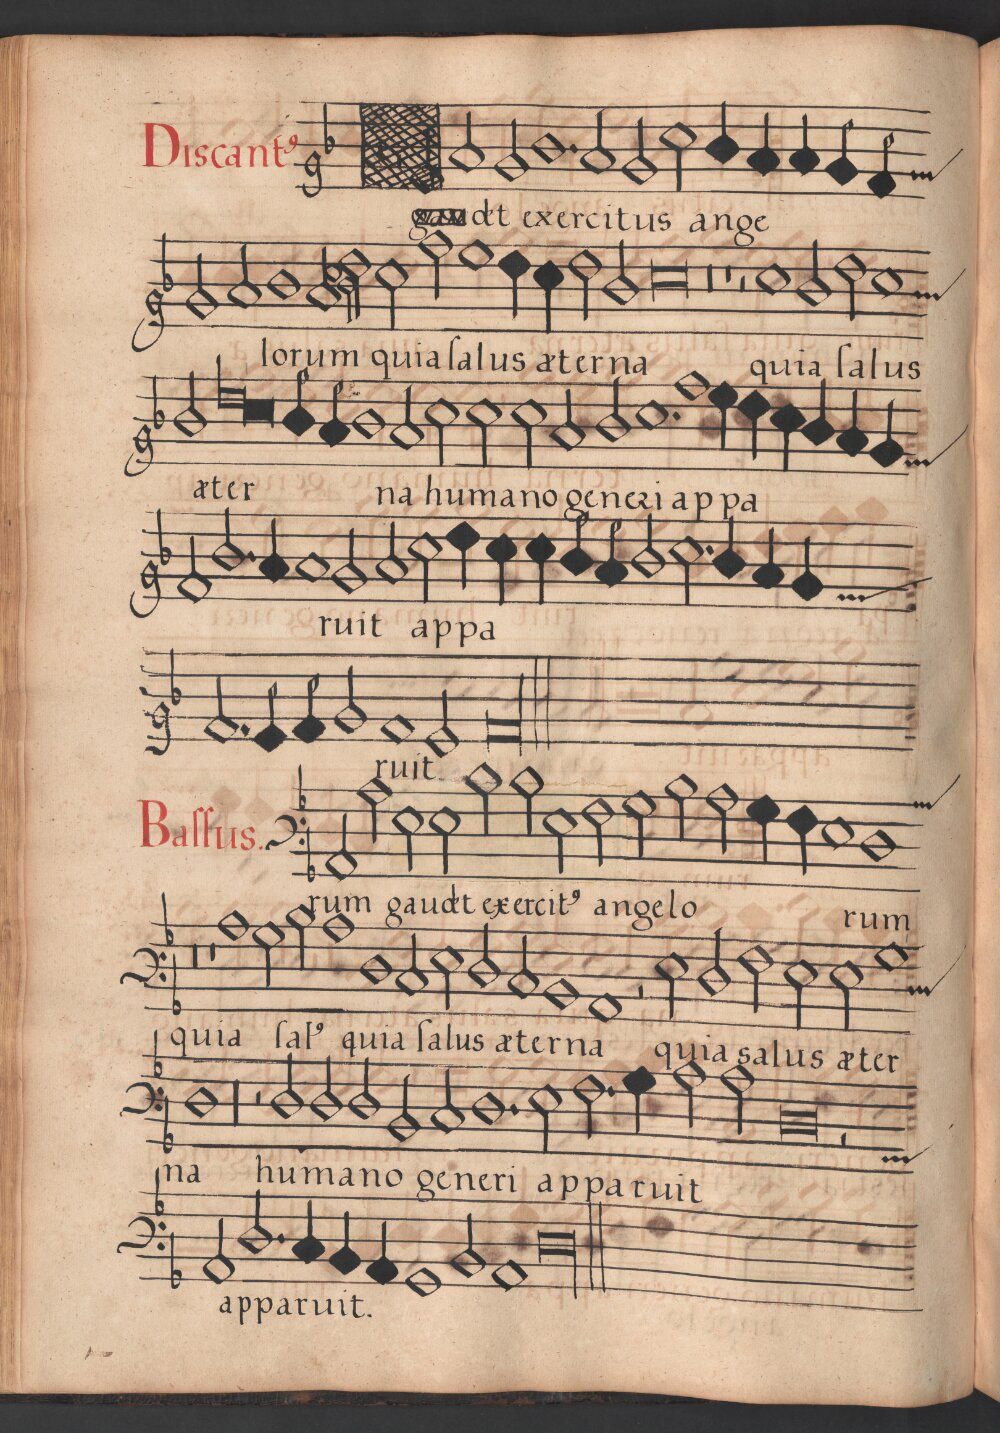 Discantꝰ
gaudet exercitus ange
lorum quia ſalus æterna quia ſalus
æter na humano generi appa
ruit appa
ruit.
Baſſus.
rum gaudet exercitꝰ angelo rum
quia ſalꝰ quia ſalus æterna quia salus æter
na humano generi apparuit
apparuit.